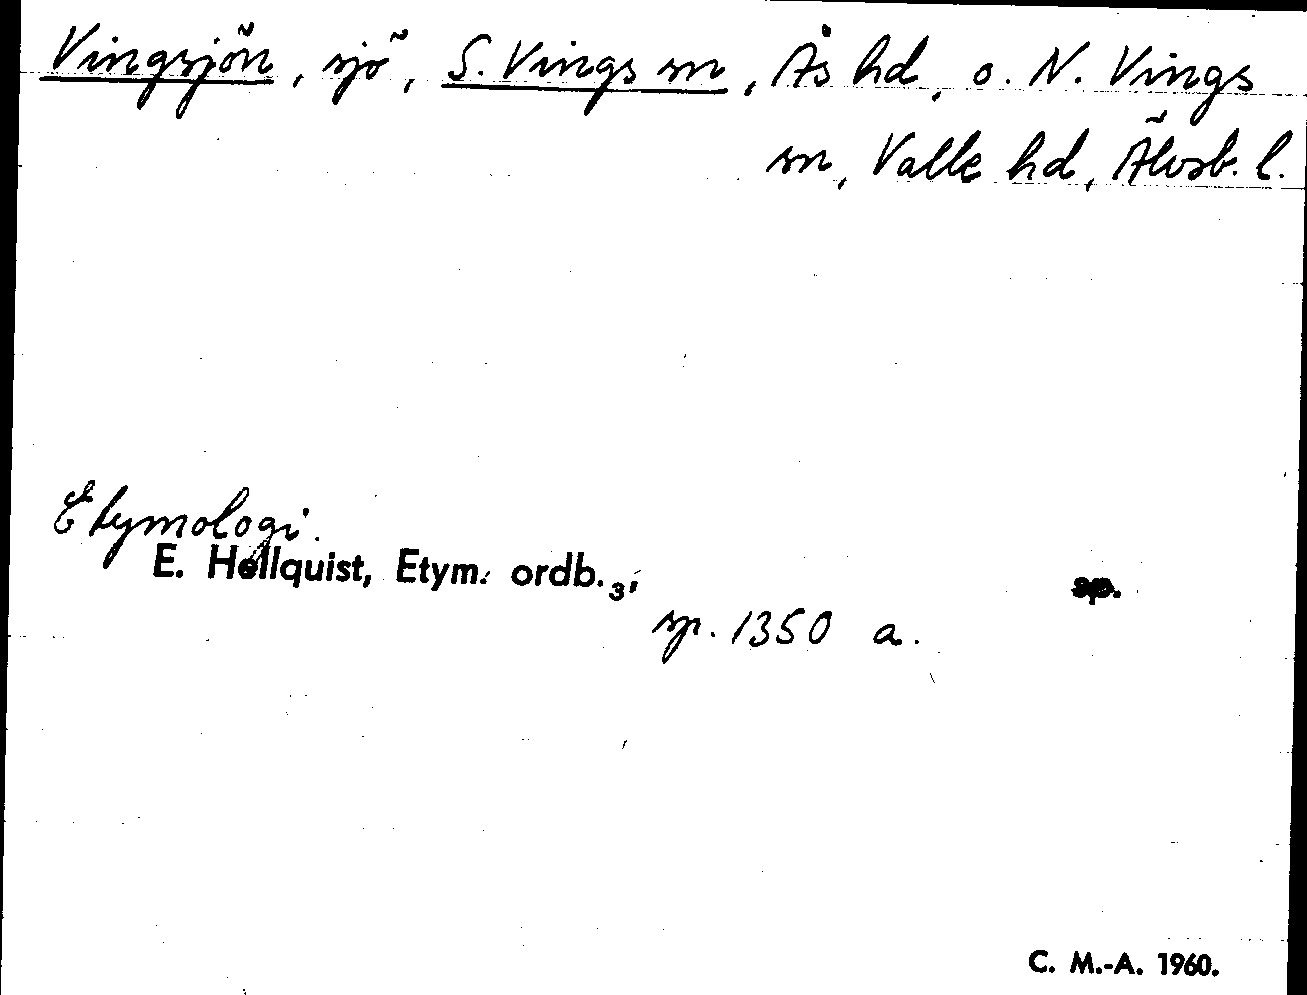 Vingsjön, sjö, S. Vings sn, Ås hd, o. N. Vings
sn, Valle hd, Älvsb. l.
Etymologi.
E. Hellquist, Etym. ordb.₃,
sp. 1350 a.
C. M.-A. 1960.